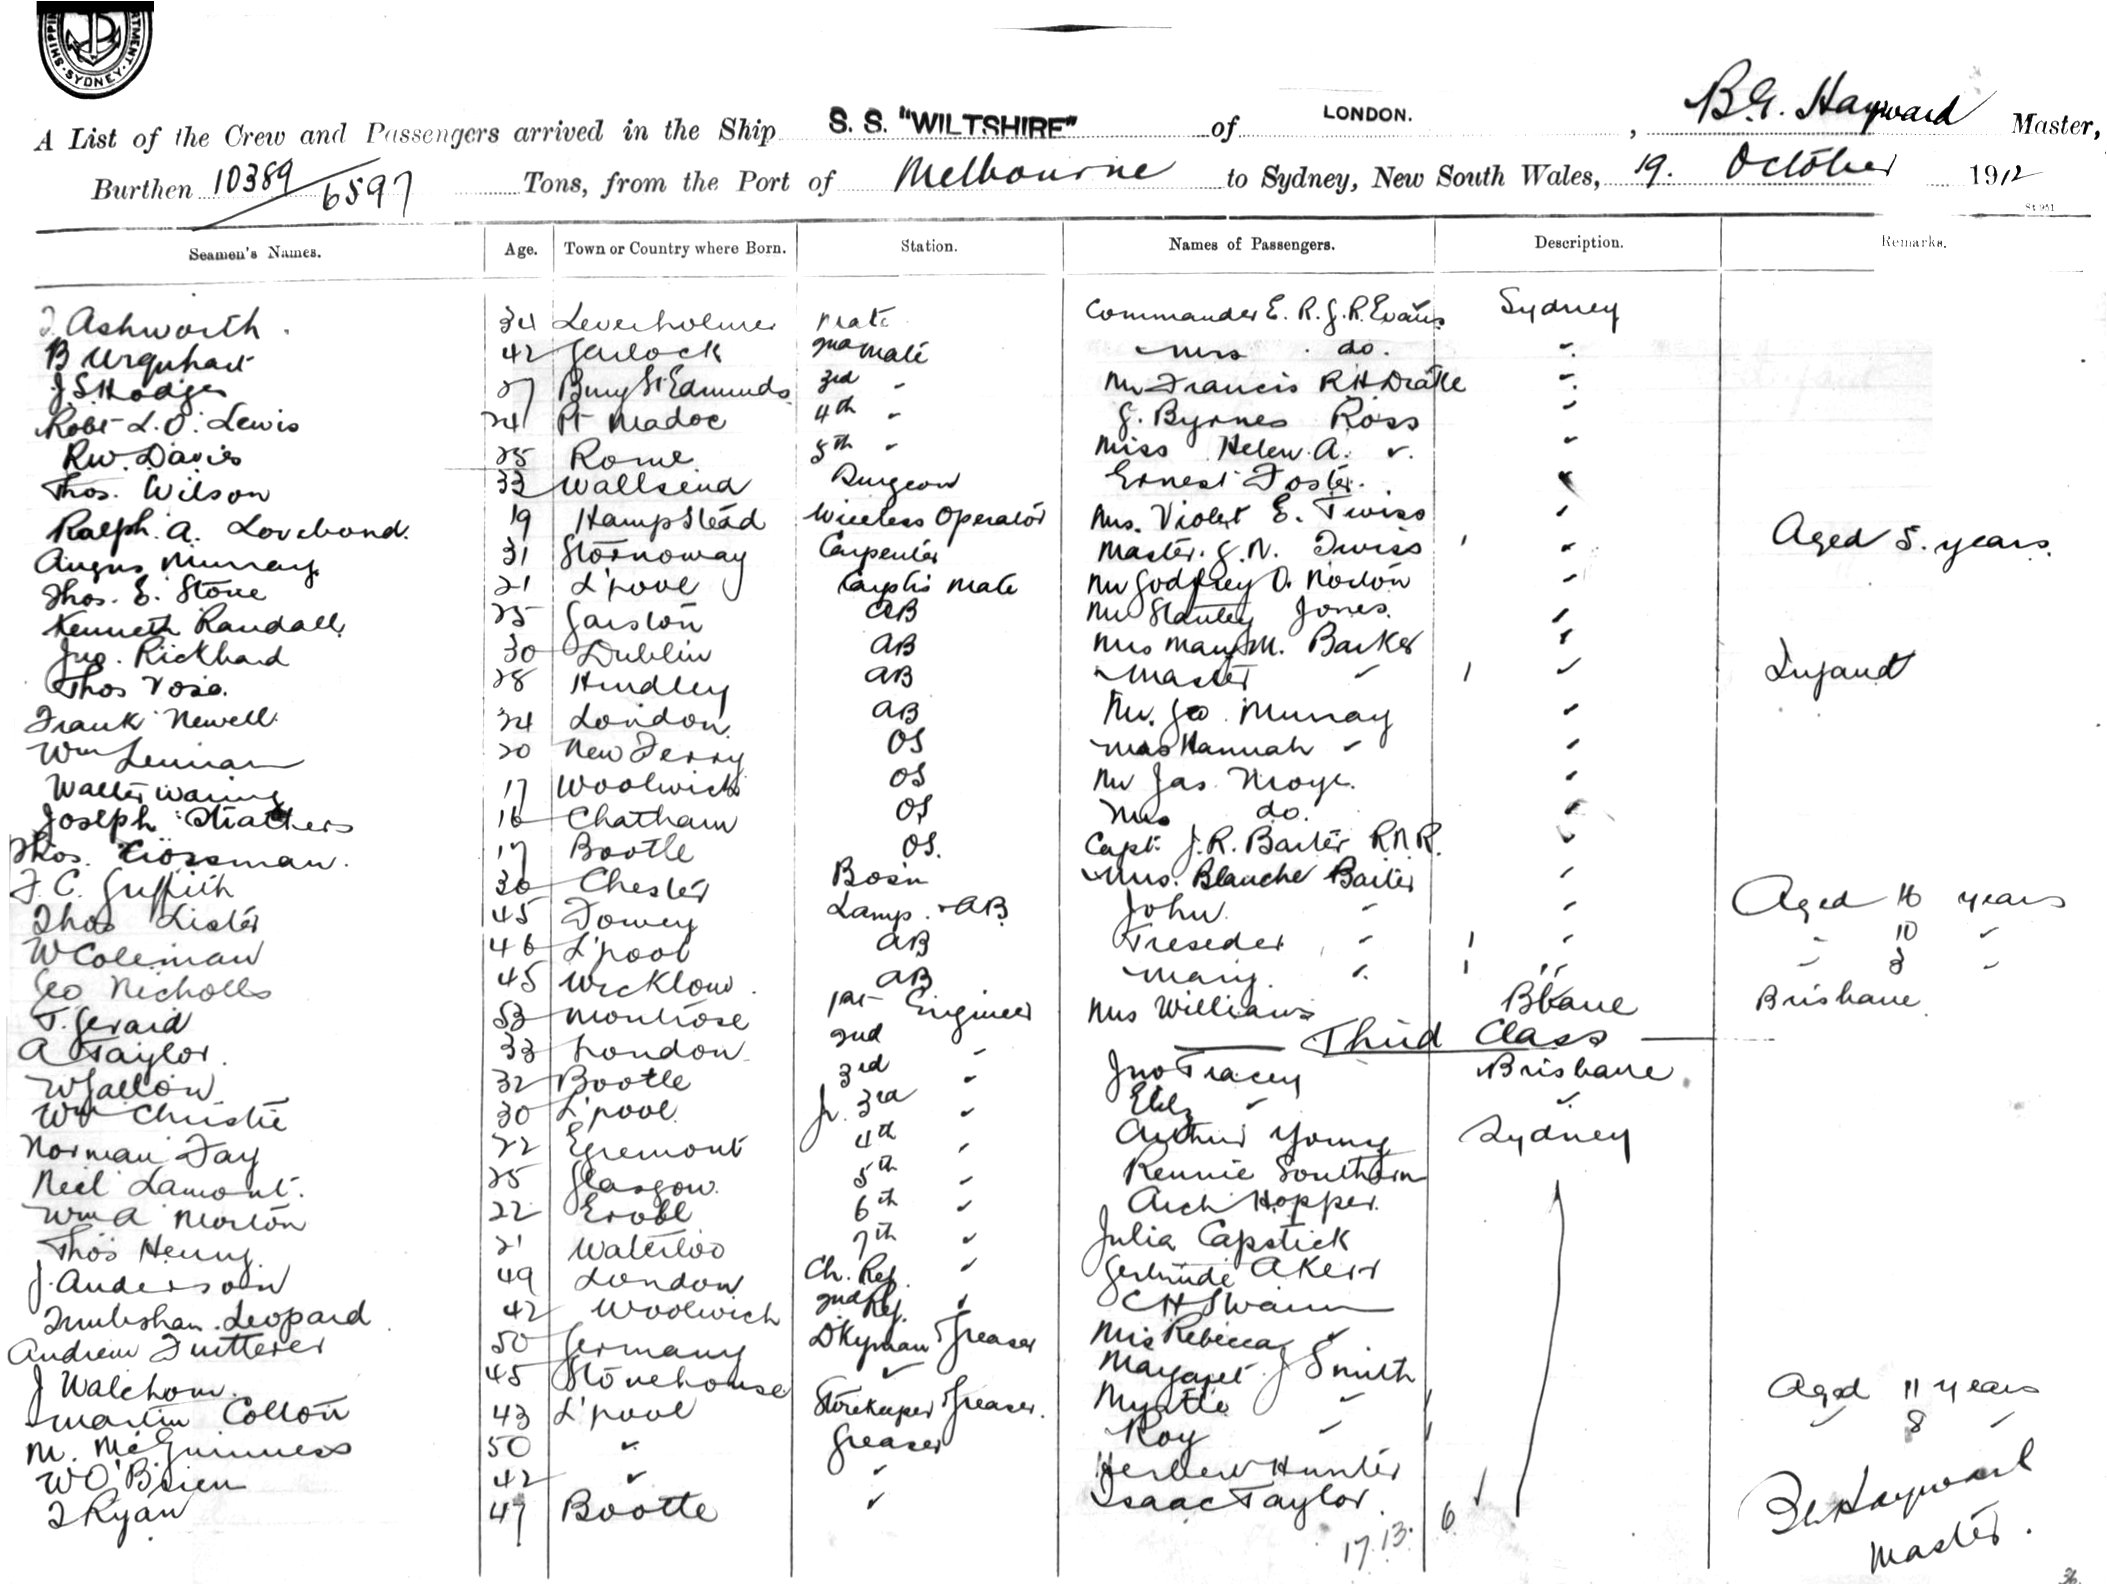 SHIPPING DEPARTMENT · SYDNEY ·
A List of the Crew and Passengers arrived in the Ship S. S. "WILTSHIRE" of LONDON. , B. G. Hayward Master,
Burthen 10389/6597 Tons, from the Port of Melbourne to Sydney, New South Wales, 19. October 1912
Seamen's Names. Age. Town or Country where Born. Station. Names of Passengers. Description. Remarks.
Ashworth. 34 Mate Commander E. R. G. R. Evans Sydney
B Urquhart 42 2nd Mate Mrs do. "
J. S. Hodges 27 Bury St Edmunds 3rd " Mr Francis R H Drake "
Robt L. O. Lewis 24 Pt Madoc 4th " G. Byrnes Ross "
R W. Davies 25 Rome 5th " Miss Helen A. " "
Thos. Wilson 33 Wallsend Surgeon Ernest Foster. "
Ralph. A. Lovebond. 19 Hampstead Wireless Operator Mrs. Violet E. Twiss "
Angus Murray 31 Stornoway Carpenter Master. G. N. Twiss 1 " Aged 5. years.
Thos. E. Stone 21 L'pool Mate Mr Godfrey O. Norton "
Kenneth Randall 25 Garston AB Mr Stanley Jones. "
Jno. Rickhard 30 Dublin AB Mrs Mary M. Barker "
Thos Vose. 28 Hindley AB Master " 1 " Infant
Frank Newell 24 London AB Mr. Geo Murray "
Wm 20 New Ferry OS Mrs Hannah " "
Walter Waring 17 Woolwich OS Mr Jas. "
Joseph Strathers 16 Chatham OS Mrs do. "
Thos. Crossman. 17 Bootle OS. Capt. J. R. Barter R N R. "
F. C. Griffith 30 Chester Bosn Mrs. Blanche Barter "
Thos Lister 45 Fowey Lamp. + AB John " " Aged 16 years
W Coleman 46 L'pool AB Treseder " 1 " " 10 "
Geo Nicholls 45 Wicklow. AB Mary. " 1 " " 3 "
T. Gerard 53 Montrose 1st Engineer Mrs Williams B'bane Brisbane
A Taylor. 33 London 2nd " Third Class
W 32 Bootle 3rd " Jno Tracey Brisbane
Wm Christie 30 L'pool Jr. 3rd " Eliz " "
Norman Fay 22 Egremont 4th " Arthur Young Sydney
Neil Lamont. 25 Glasgow. 5th " Rennie Southern
Wm A Morton 22 6th " Arch Hopper.
Thos Henry 21 Waterloo 7th " Julia Capstick
J. Anderson 49 London Ch. Ref. " Gertrude A Kerr
Leopard 42 Woolwich 2nd Ref. " C H Swann
Andrew Futterer 50 Germany D'Kyman + Greaser Mrs Rebecca "
J 45 Stonehouse " Margaret J Smith
Martin Colton 43 L'pool Storekeeper + Greaser. Myrtle " 1 Aged 11 years
M. McGuinness 50 " Greaser Roy " 1 " 8 "
W O'Brien 42 " " Herbert Hunter
T Ryan 47 Bootle " Isaac Taylor.
17. 13. 6
Hayward
Master.
36.